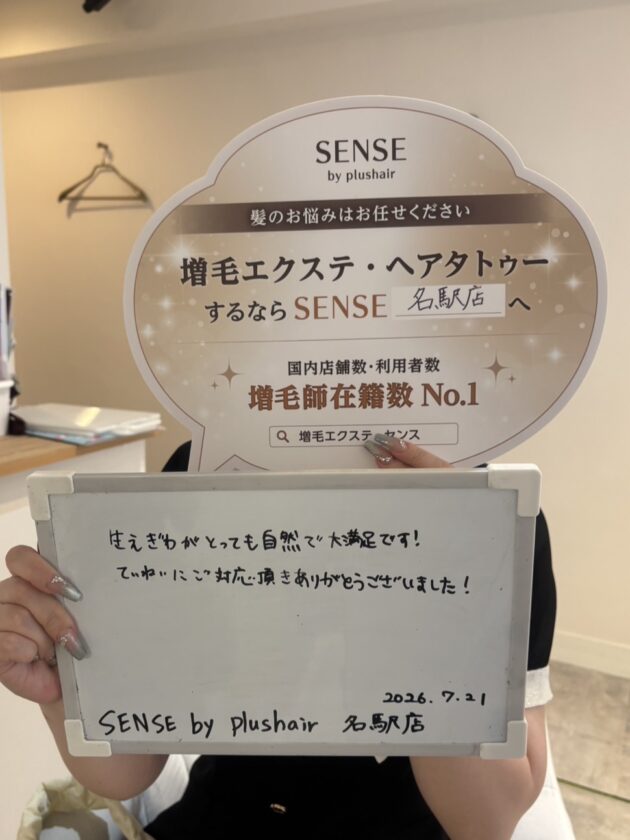 SENSE
by plushair
髪のお悩みはお任せください
増毛エクステ・ヘアタトゥー
するなら SENSE 名駅店 へ
国内店舗数・利用者数
増毛師在籍数 No.1
増毛エクステ センス
生えぎわがとっても自然で大満足です!
ていねいにご対応頂きありがとうございました!
2026.7.21
SENSE by plushair 名駅店